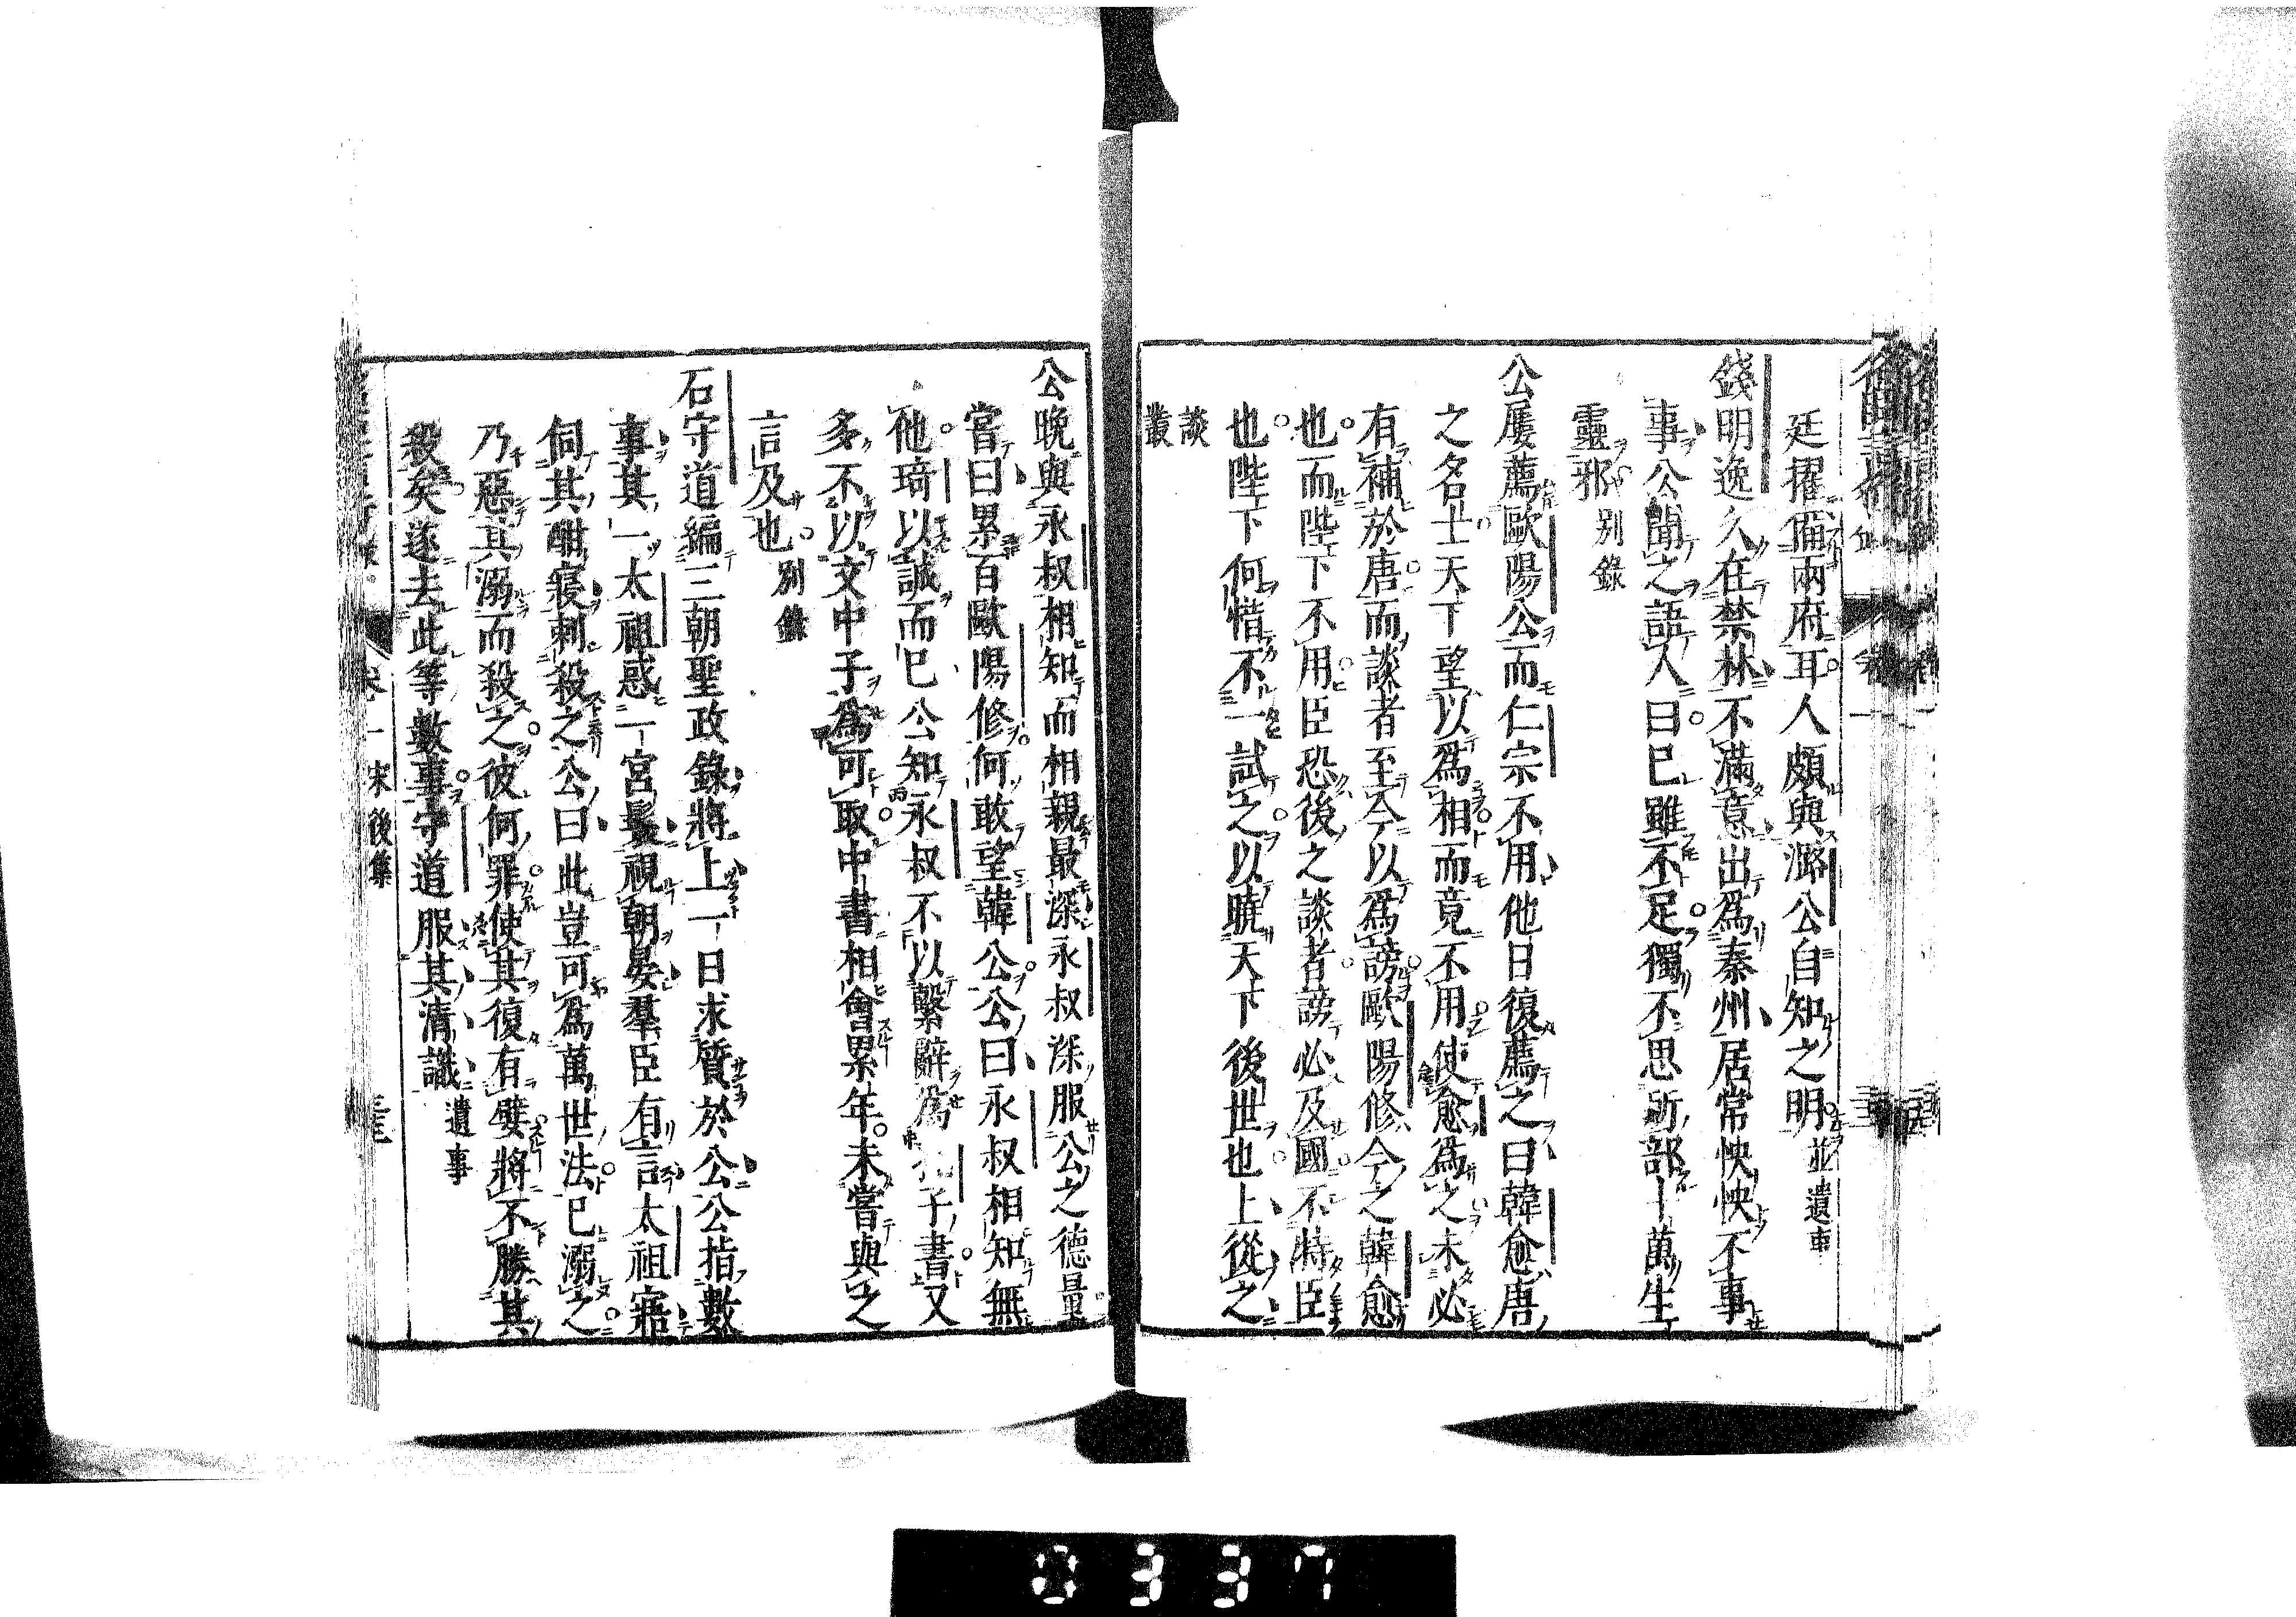 廷擢備兩府耳人頗與潞公自知之明並遺事
錢明逸久在禁林不滿意出爲秦州居常怏怏不事
事公聞之語人曰已雖不足獨不思所部十萬生
靈邪別錄
公屢薦歐陽公而仁宗不用他日復薦之曰韓愈唐
之名士天下望以爲相而竟不用使愈爲之未必
有補於唐而談者至今以爲謗歐陽修今之韓愈
也而陛下不用臣恐後之談者謗必及國不特臣
也陛下何惜不一試之以曉天下後世也上從之
談
叢
公晚與永叔相知而相親最深永叔深服公之德量
嘗曰累百歐陽修何敢望韓公公曰永叔相知無
他琦以誠而已公知永叔不以繫辭爲孔子書又
多不以文中子爲可取中書相會累年未嘗與之
言及也別錄
石守道編三朝聖政錄將上一日求質於公公指數
事其一太祖惑一宮鬟視朝晏羣臣有言太祖寤
伺其酣寢刺殺之公曰此豈可爲萬世法已溺之
乃惡其溺而殺之彼何罪使其復有嬖將不勝其
殺矣遂去此等數事守道服其清識遺事
宋後集
0337